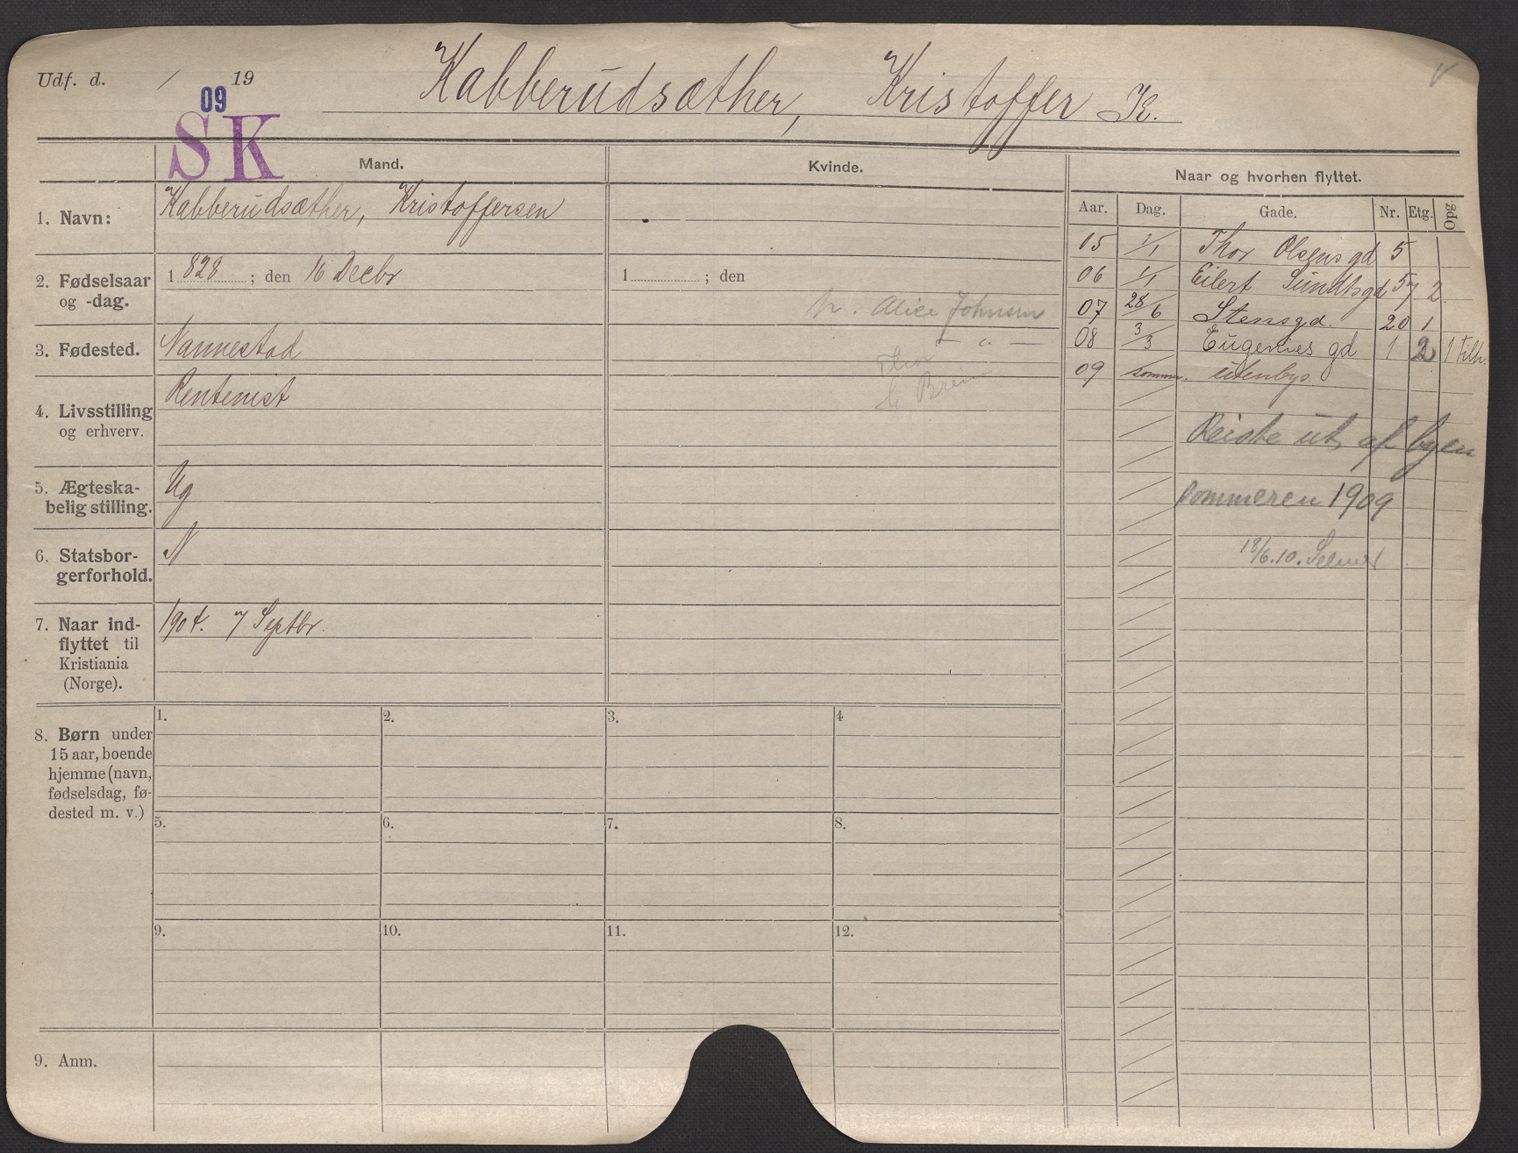 Udf. d. / 19
09
SK
Kabberudsæther, Kristoffer K.
Mand.
Kvinde.
Naar og hvorhen flyttet.
Aar. Dag. Gade. Nr. Etg. Opg
1. Navn:
Kabberudsæther, Kristoffersen
2. Fødselsaar og -dag.
1828; den 16 Decbr
1 ; den
h. Alice Johnsen
— " —
3. Fødested.
Nannestad
4. Livsstilling og erhverv.
Rentenist
5. Ægteskabelig stilling.
Ug
6. Statsborgerforhold.
N
7. Naar indflyttet til Kristiania (Norge).
1904. 7 Septbr.
8. Børn under 15 aar, boende hjemme (navn, fødselsdag, fødested m. v.)
1. 2. 3. 4
5. 6. 7. 8.
9. 10. 11. 12.
9. Anm.
05 1/1 Thor Olsens gd 5
06 1/1 Eilert Sundts gd 57 2
07 28/6 Stensgd. 20 1
08 3/3 Eugenies gd 1 2 1 tilh.
09 somm. utenbys
Reiste ut af byen
sommeren 1909
18/6.10. Selmer